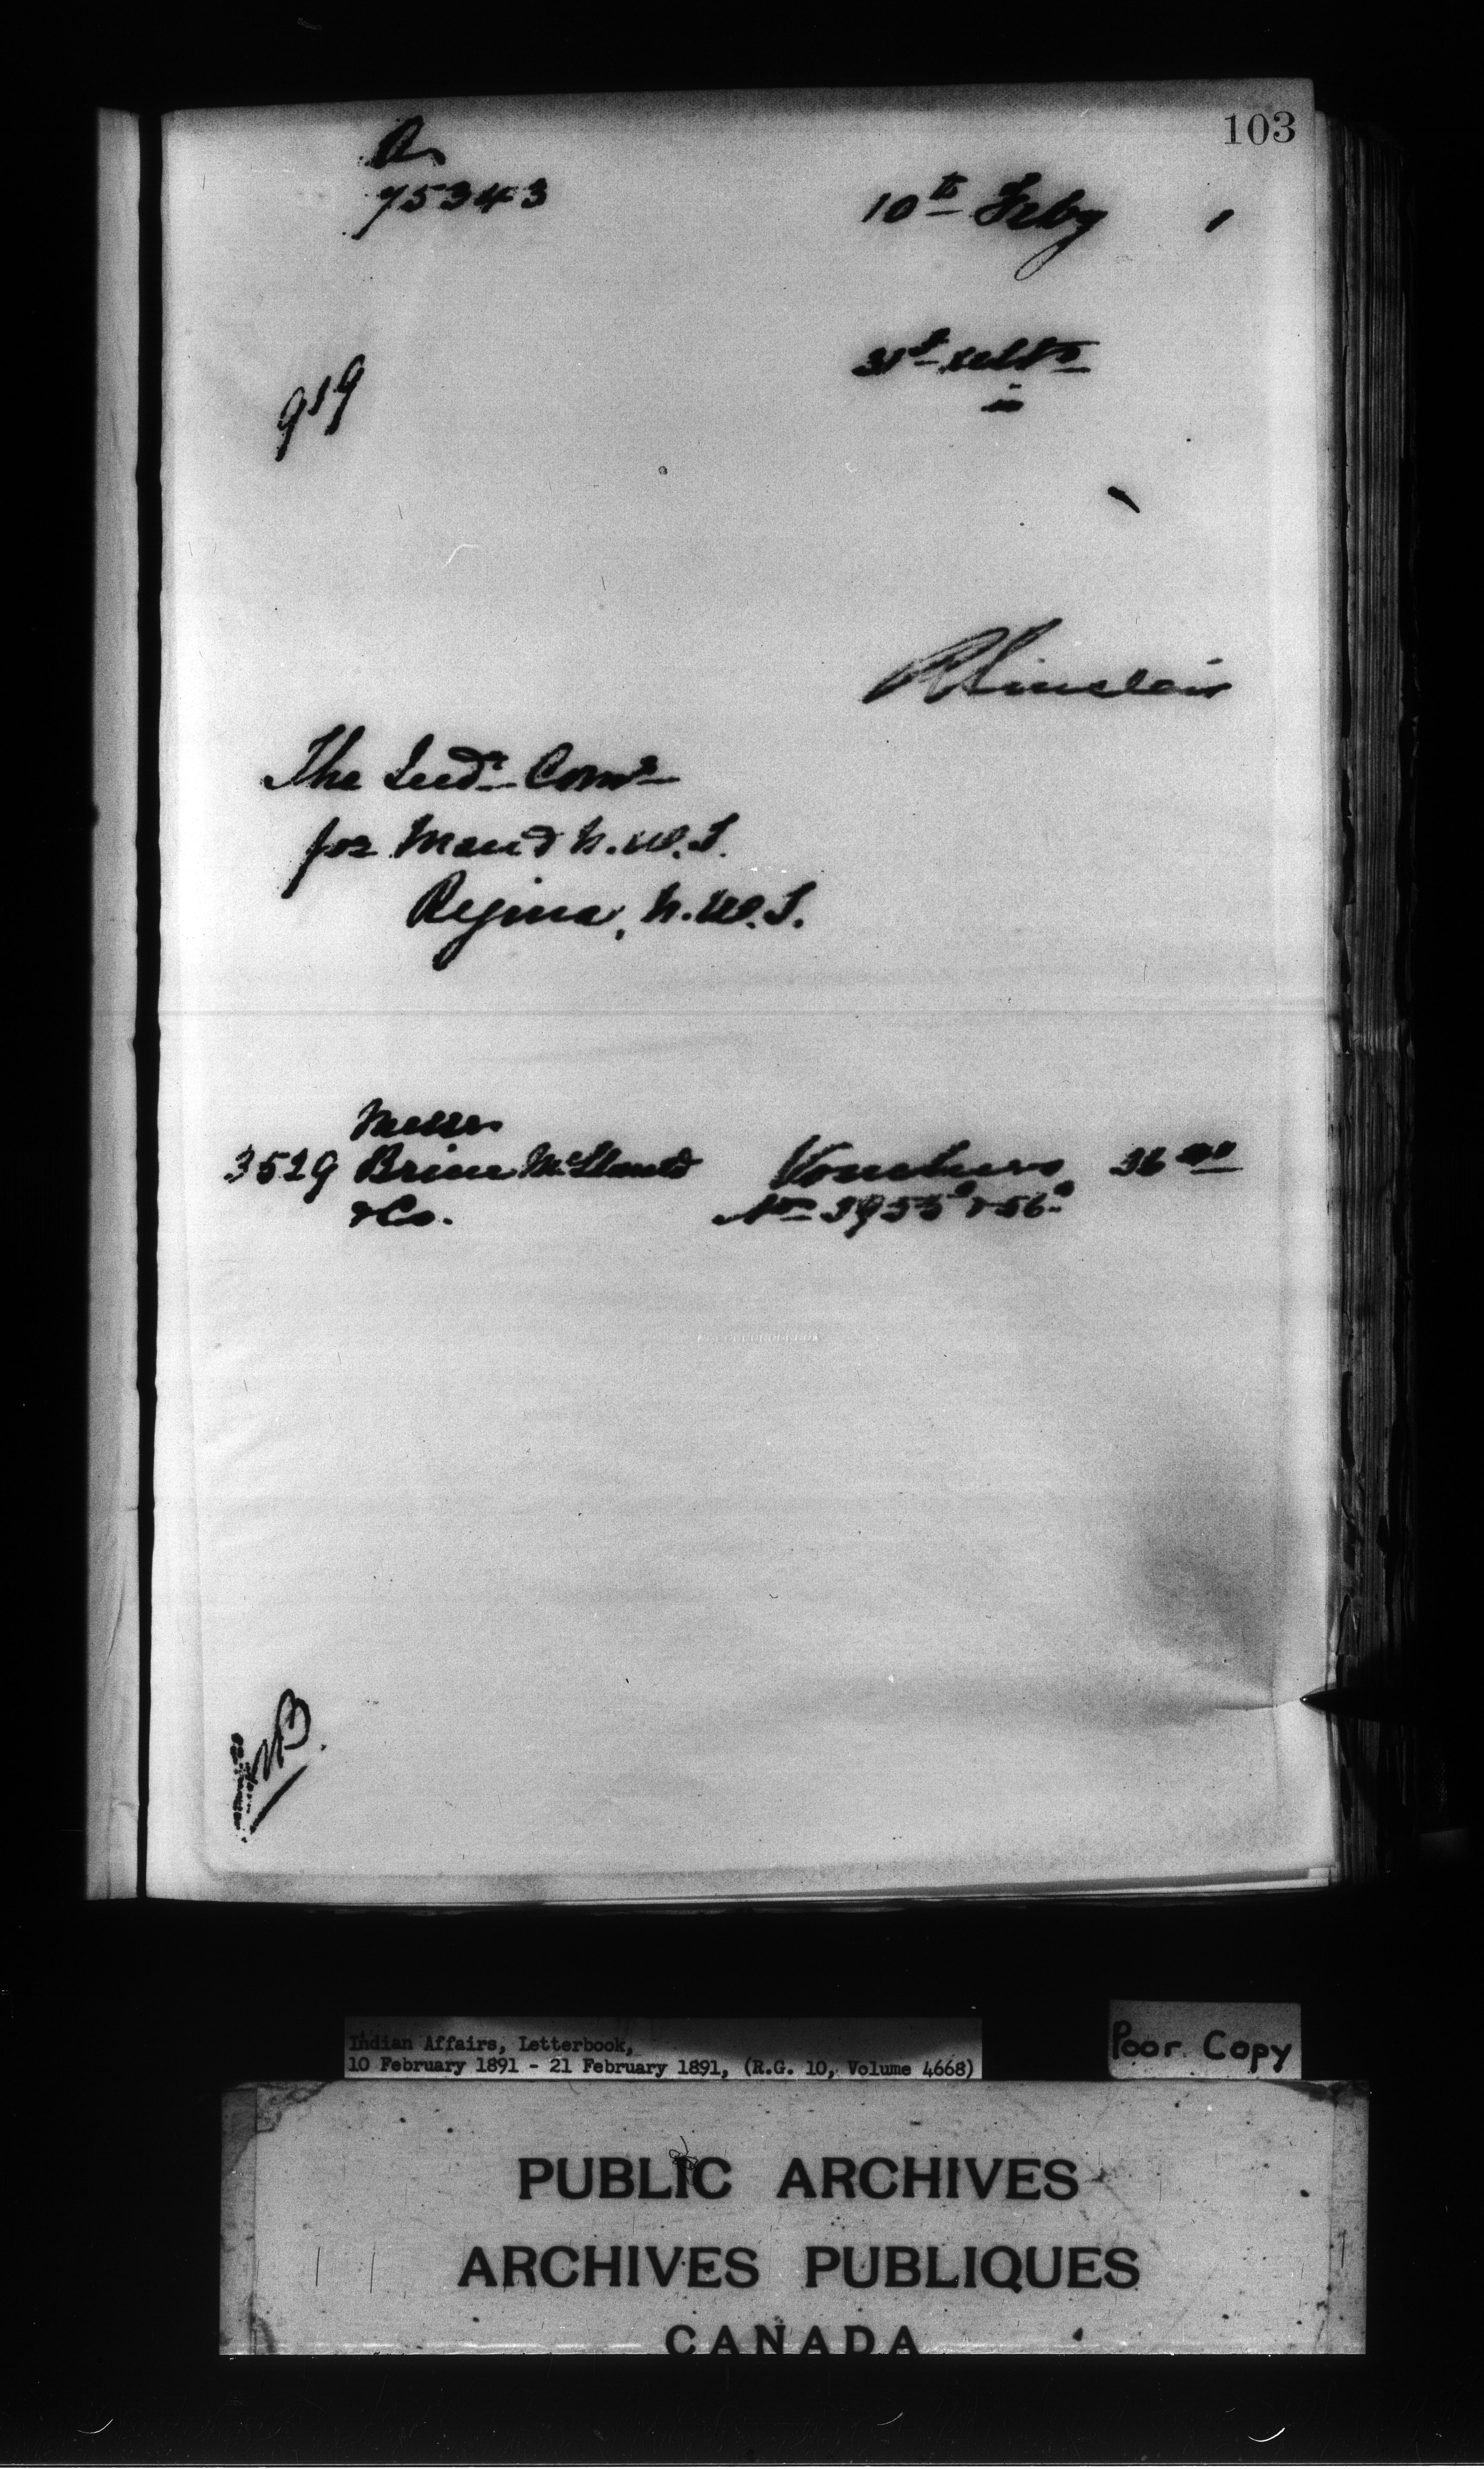 103
A
75343
10th Feby 1
31st ulto
919
R Sinclair
The Indn Comr
for Man & N.W.T.
Regina, N.W.T.
Messrs
3529 Brine McDand Vouchers 36 00
& Co.
Nos 3955a & 56a
Indian Affairs, Letterbook,
10 February 1891 - 21 February 1891, (R.G. 10, Volume 4668)
Poor Copy
PUBLIC ARCHIVES
ARCHIVES PUBLIQUES
CANADA